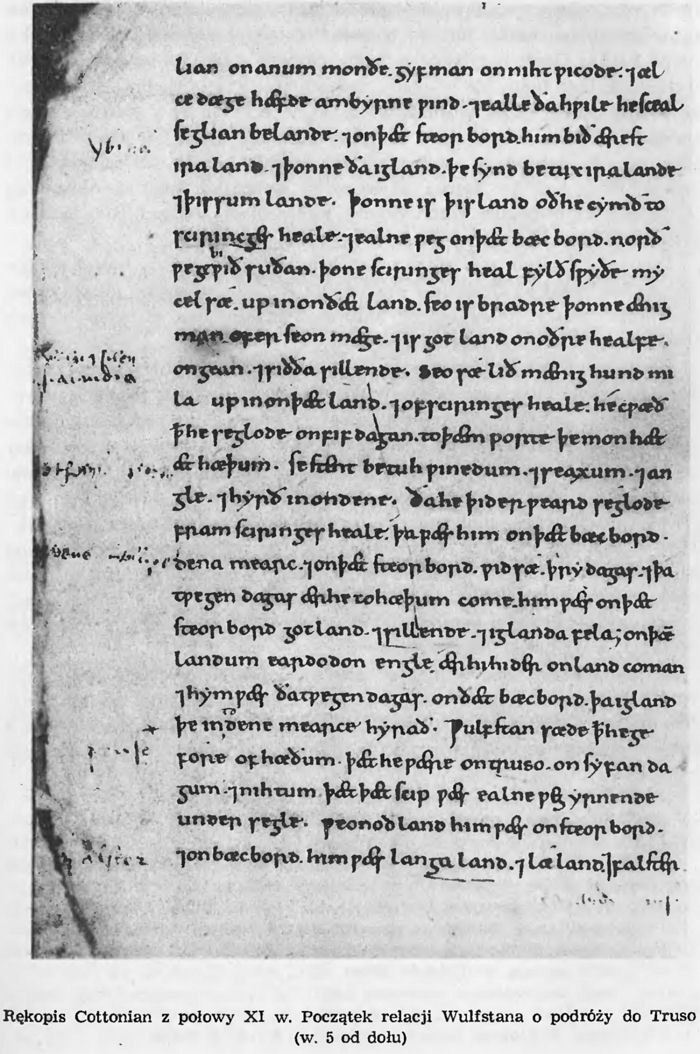 lian on anum monðe. gyf man on niht ƿicode. ⁊ æl
ce dæge hæfde ambyrne ƿind. ⁊ ealle ða hƿile he sceal
seglian be lande. ⁊ on þæt steorbord. him bið ærest
iraland. ⁊ þonne ða igland. þe synd betux iralande
⁊ þissum lande. þonne is þis land oð he cymð to
sciringes heale. ⁊ ealne ƿeg on þæt bæcbord. norð
ƿeg ƿið suðan. þone sciringes heal fylð sƿyðe my
cel sæ. up in on ðæt land. seo is bradre þonne ænig
man ofer seon mæge. ⁊ is gotland on oðre healfe.
ongean. ⁊ siððа sillende. Seo sæ lið mænig hund mi
la up in on þæt land. ⁊ of sciringes heale. he cƿæð
ꝥ he seglode on fif dagan. to þæm porte þe mon hæt
æt hæþum. se stent betuh ƿinedum. ⁊ seaxum. ⁊ an
gle. ⁊ hyrð in on dene. ða he þiderƿeard seglode
fram sciringes heale. þa ƿæs him on þæt bæcbord.
dena mearc. ⁊ on þæt steorbord. ƿid sæ. þry dagas. ⁊ þa
tƿegen dagas ær he to hæþum come. him ƿæs on þæt
steorbord gotland. ⁊ sillende. ⁊ iglanda fela; on þæ̅
landum eardodon engle. ær hi hider on land coman
⁊ hym ƿæs ða tƿegen dagas. on ðæt bæcbord. þa igland
þe in dene mearce hyrað. Ƿulfstan sæde ꝥ he ge
fore of hæðum. þæt he ƿære on truso. on syfan da
gum. ⁊ nihtum þæt þæt scip ƿæs ealne ƿeg yrnende
under segle. Ƿeonodland him ƿæs on steorbord.
⁊ on bæcbord. him ƿæs langaland. ⁊ læland. ⁊ falster
Rękopis Cottonian z połowy XI w. Początek relacji Wulfstana o podróży do Truso
(w. 5 od dołu)